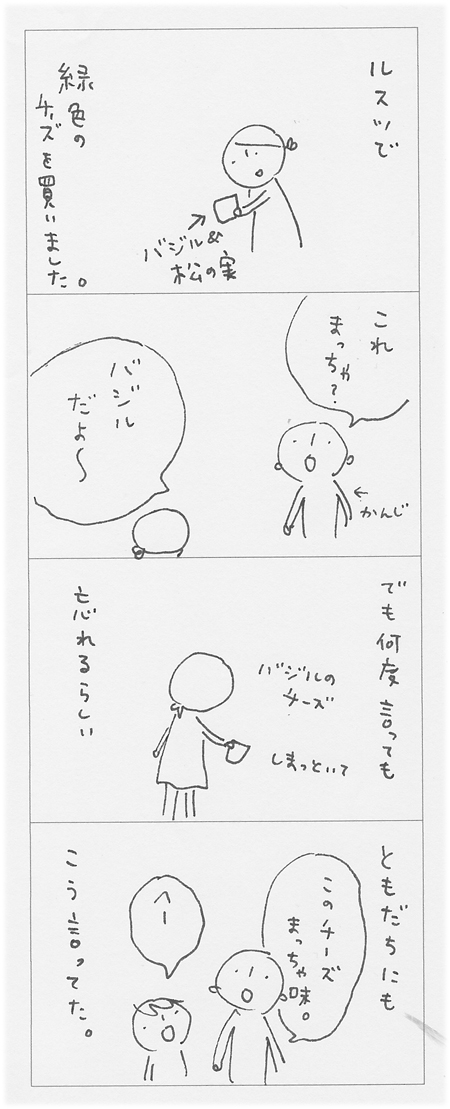 ルスツで
緑色の
チーズを買いました。
バジル&
松の実
これ
まっちゃ?
バジル
だよ〜
かんじ
でも何度言っても
バジルの
チーズ
しまっといて
忘れるらしい
ともだちにも
このチーズ
まっちゃ味。
へー
こう言ってた。